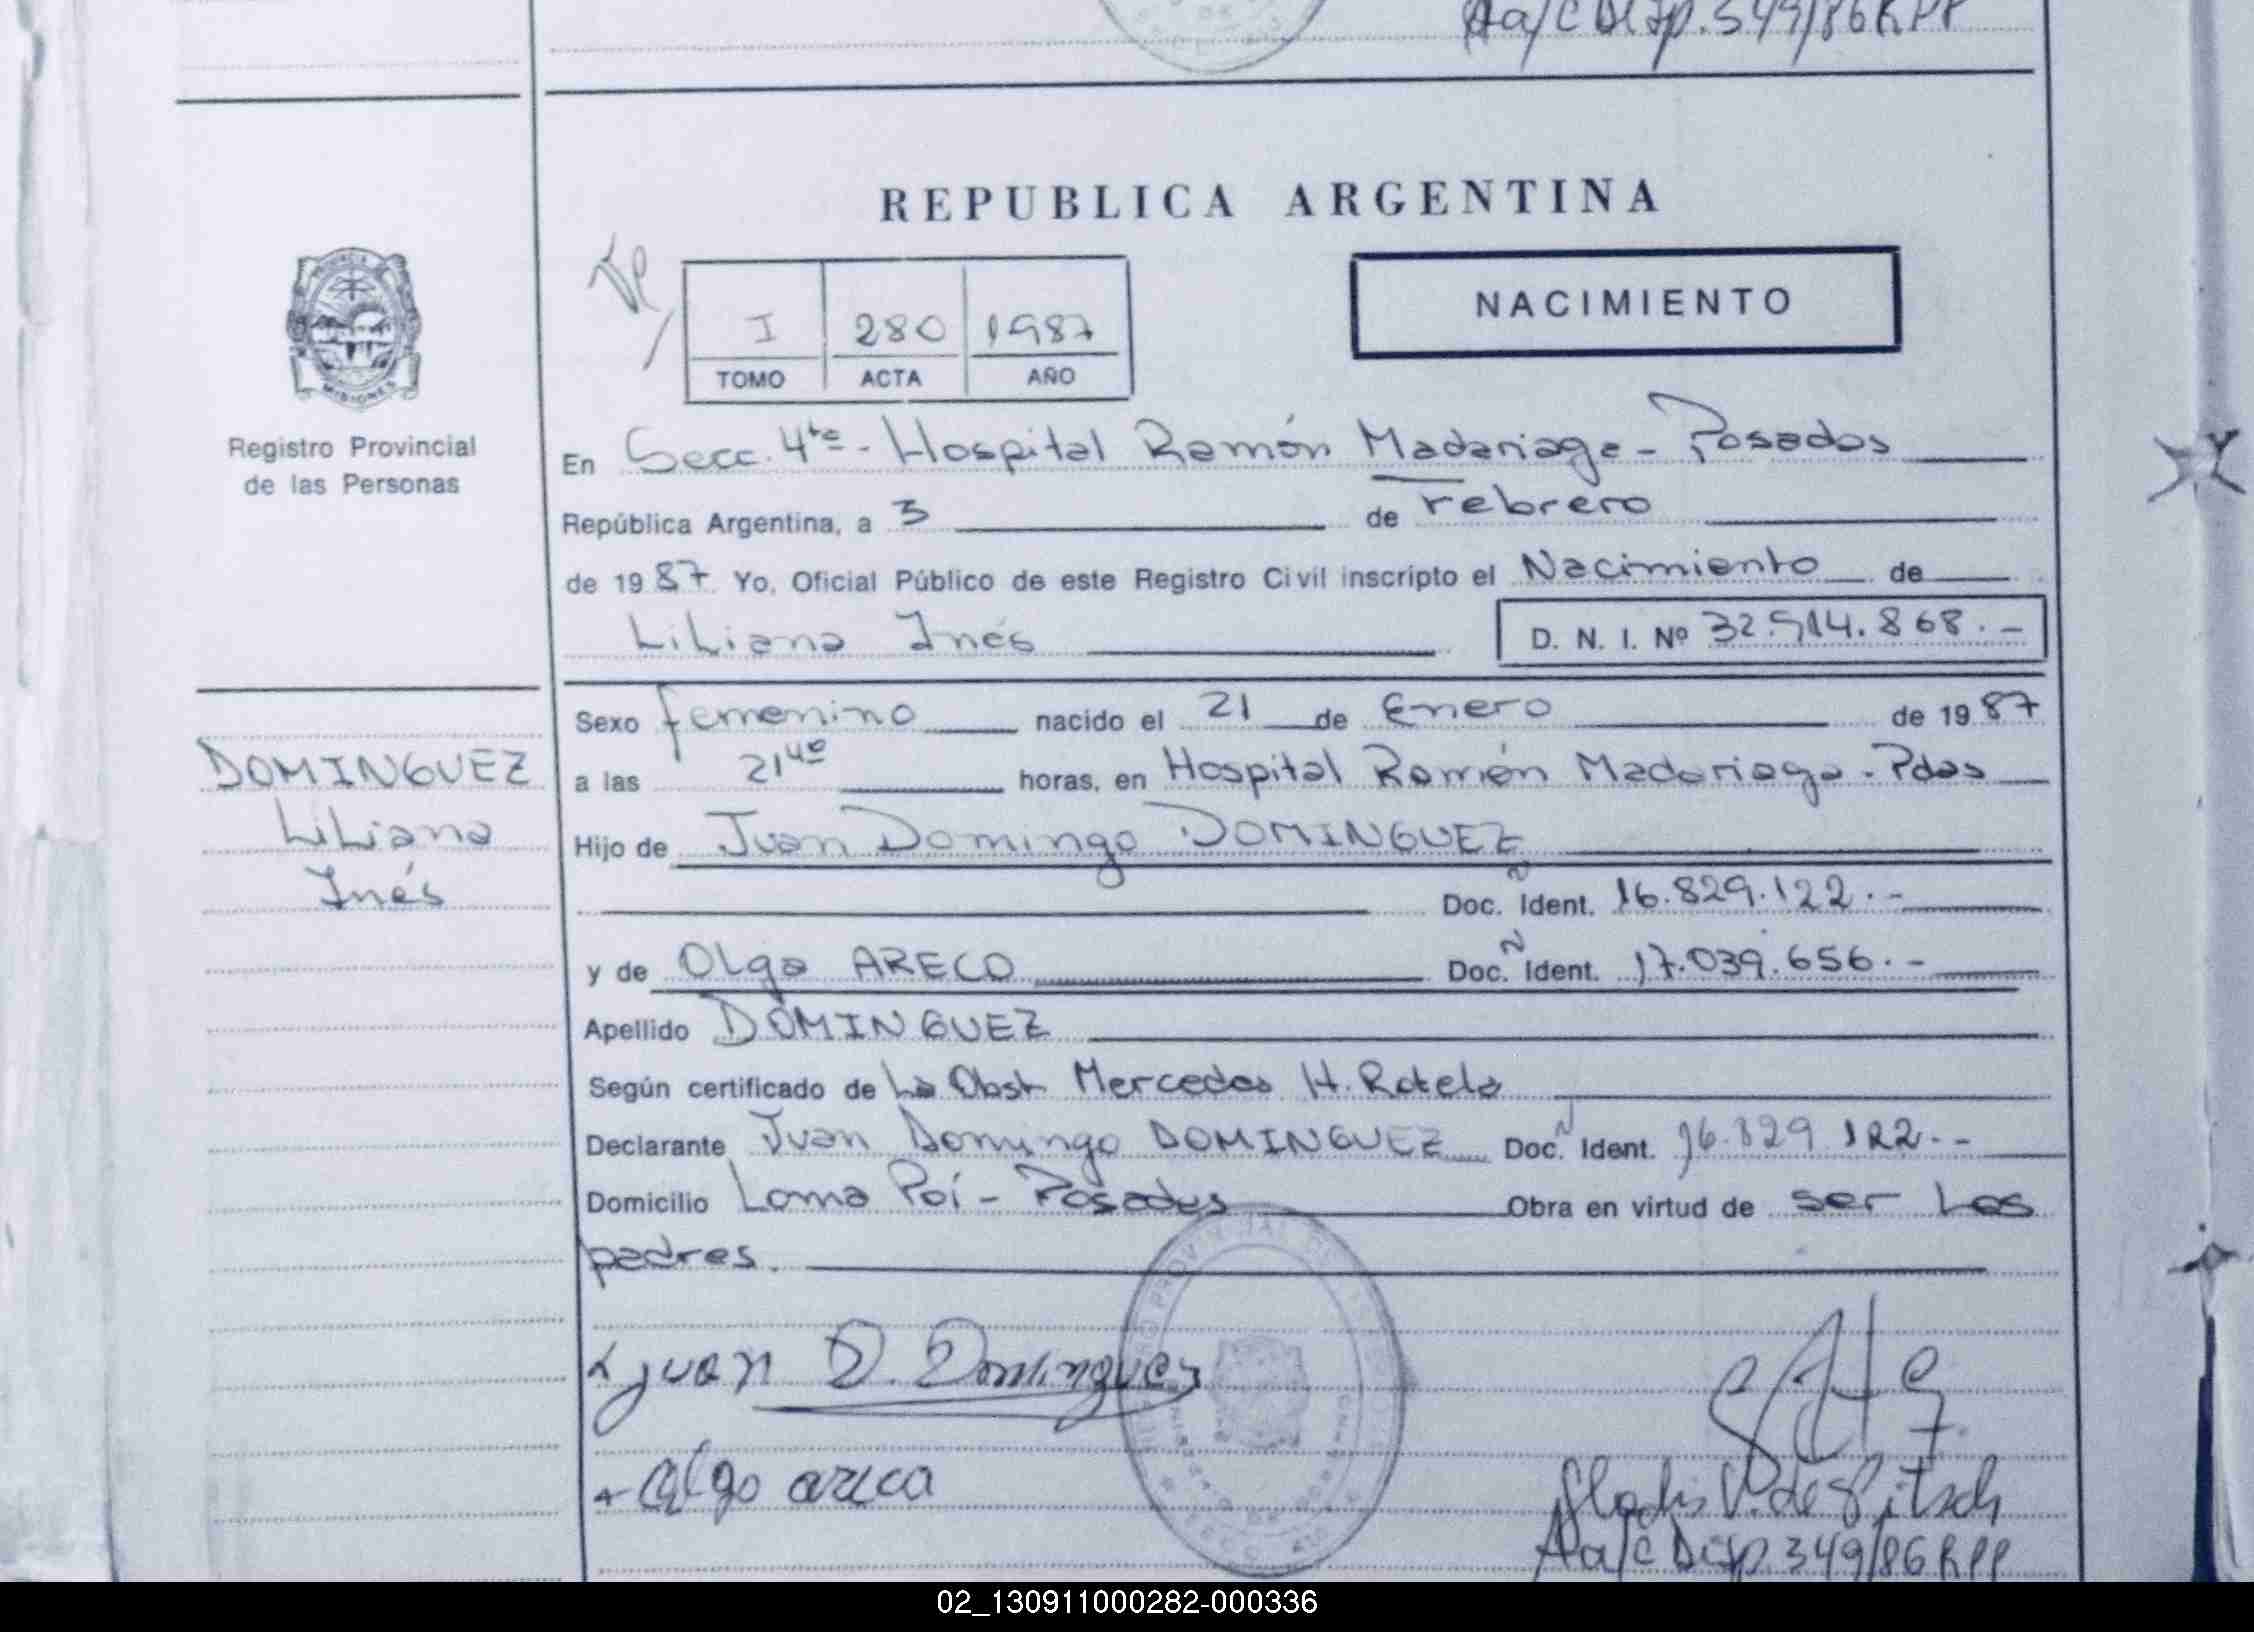 Aa/c Disp. 349/86 RPP
REPUBLICA ARGENTINA
I 280 1987
TOMO ACTA AÑO
NACIMIENTO
PROVINCIA DE MISIONES
Registro Provincial
de las Personas
En Secc. 4ta - Hospital Ramón Madariaga - Posadas
República Argentina, a 3 de Febrero
de 1987 Yo, Oficial Público de este Registro Civil inscripto el Nacimiento de
Liliana Inés D. N. I. Nº 32.914.868.-
Sexo femenino nacido el 21 de Enero de 1987
a las 21 40 horas, en Hospital Ramón Madariaga - Pdas
Hijo de Juan Domingo DOMINGUEZ
Doc. Ident. 16.829.122.-
y de Olga ARECO Doc. Ident. 17.039.656.-
Apellido DOMINGUEZ
Según certificado de La Obst Mercedes H. Rotela
Declarante Juan Domingo DOMINGUEZ Doc. Ident. 16.829.122.-
Domicilio Loma Poí - Posadas Obra en virtud de ser Los
padres.
DOMINGUEZ
Liliana
Inés
Juan D. Dominguez
olga areca
Gladis V. de Pitsch
Aa/c Disp. 349/86 RPP
02_130911000282-000336